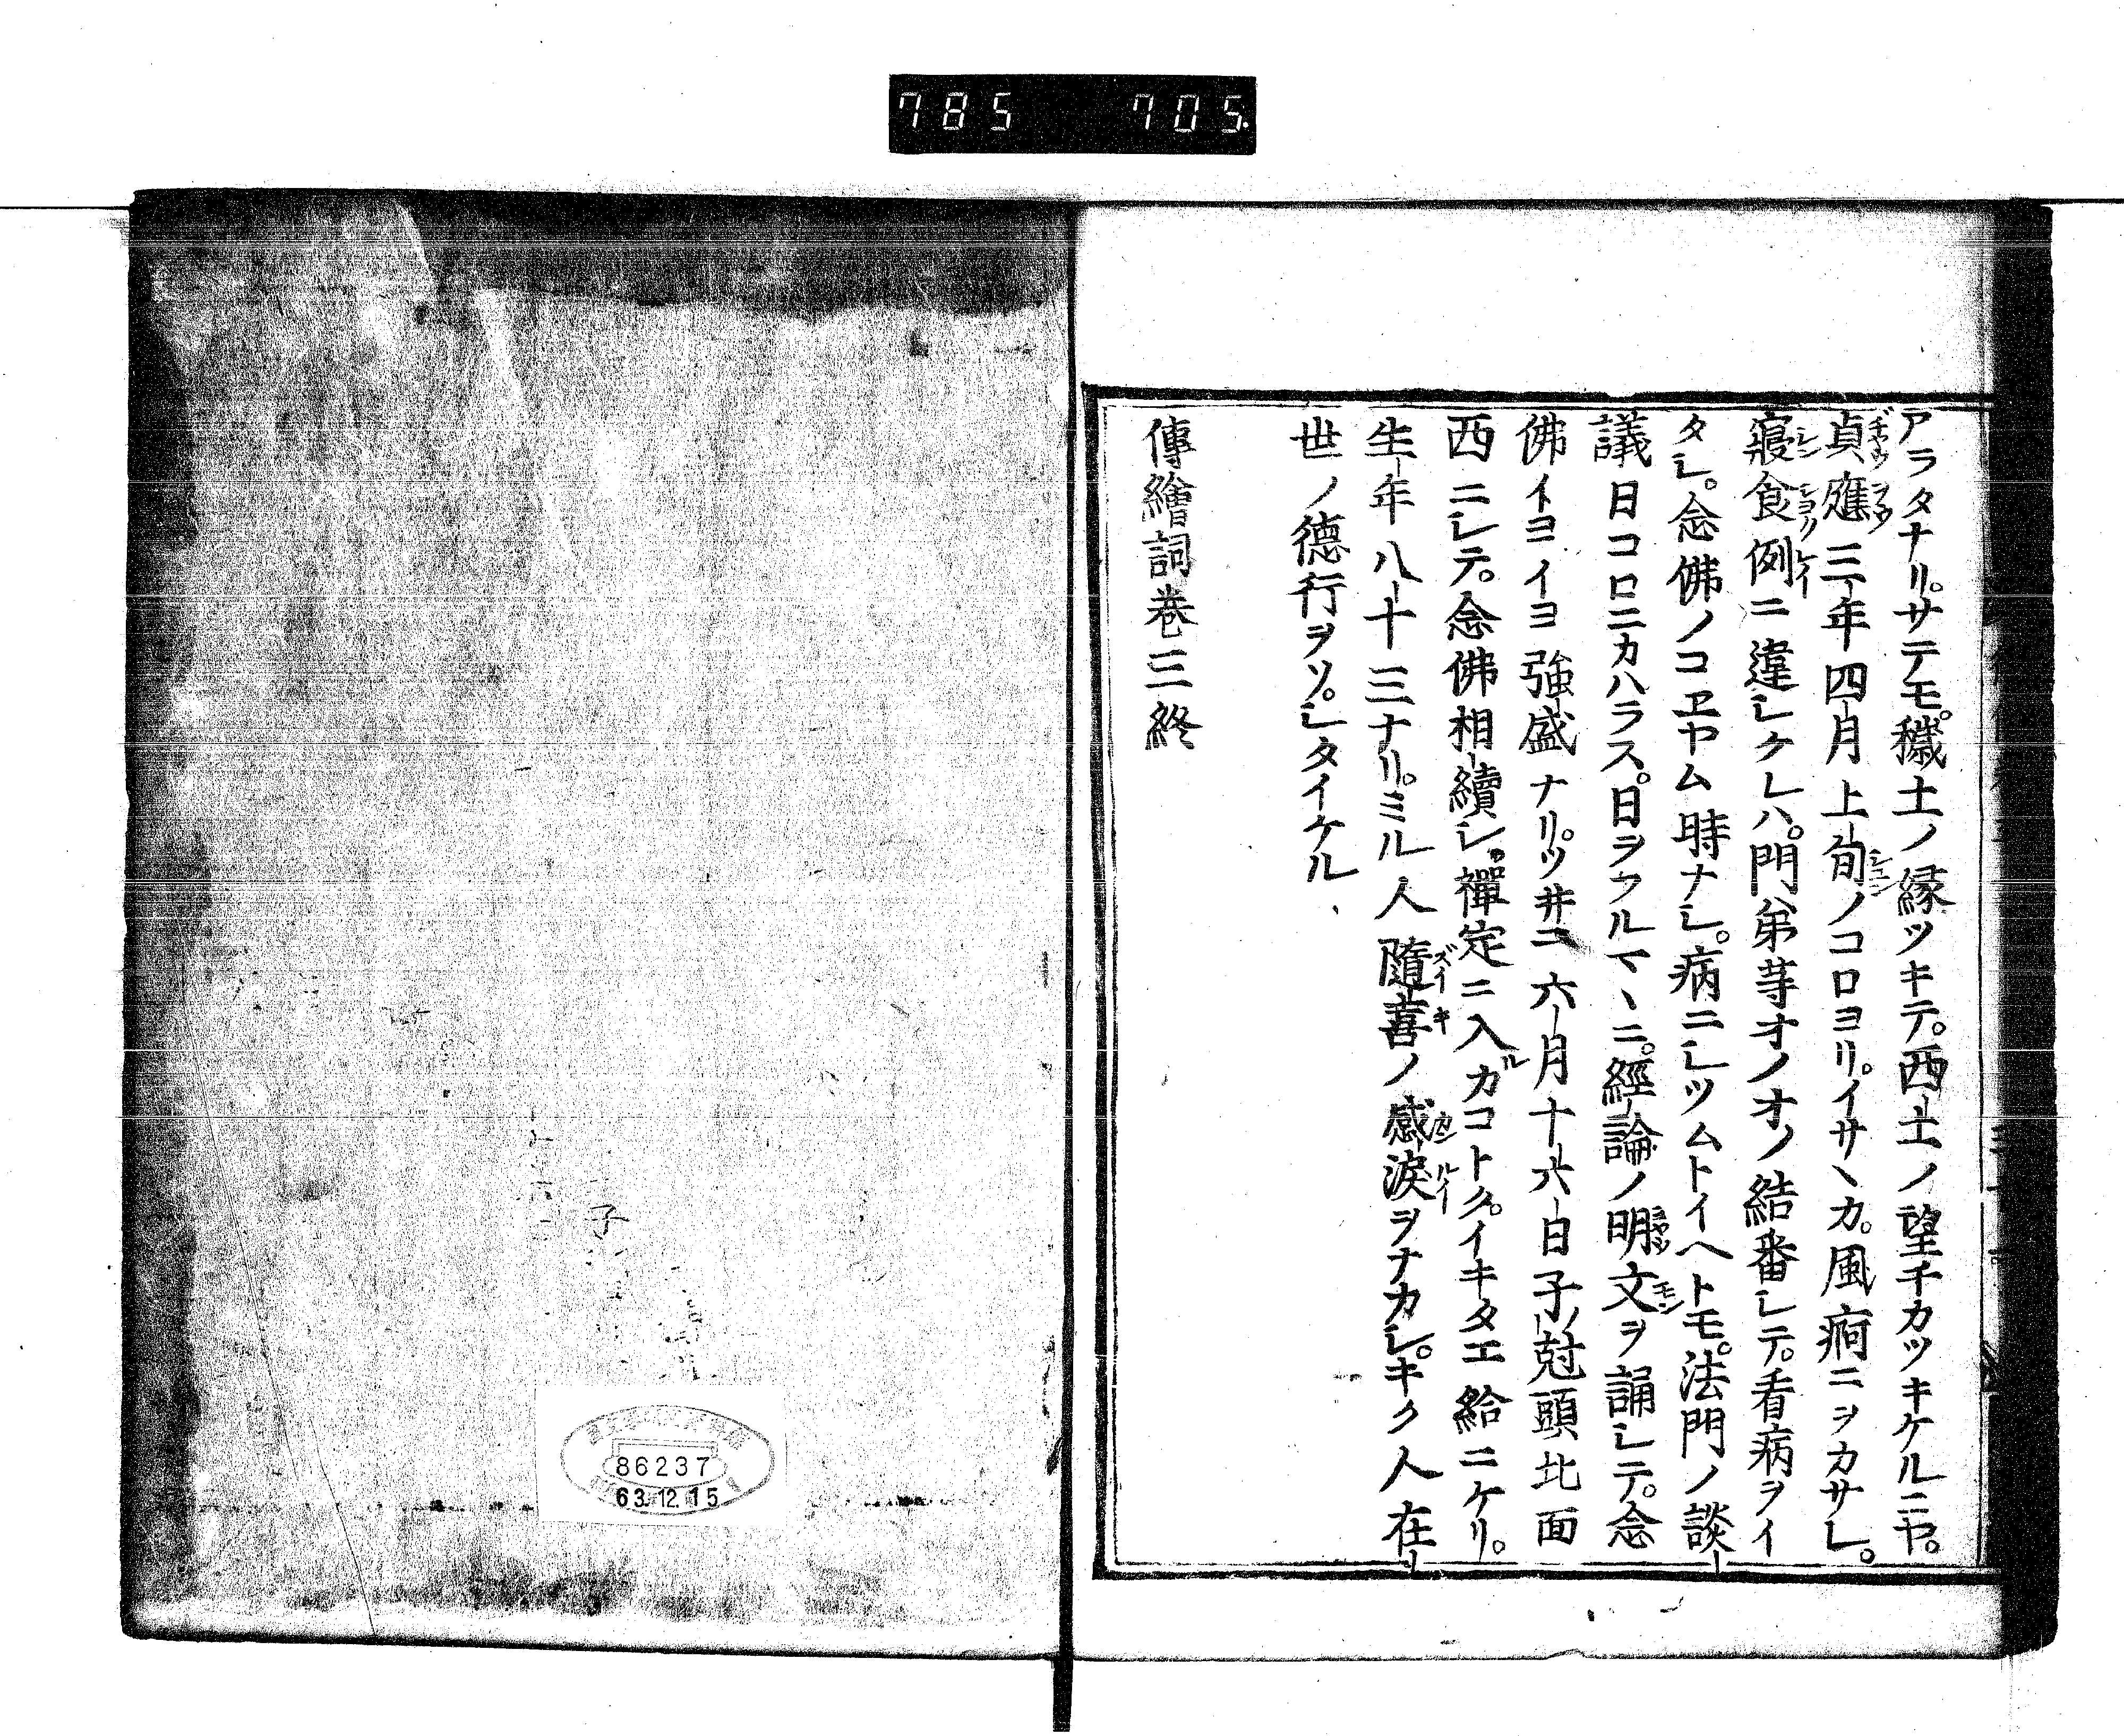 785 705.
アラタナリ。サテモ。穢土ノ縁ツキテ。西土ノ望チカツキケルニヤ。
貞應三年四月上旬ノコロヨリ。イサヽカ。風痾ニヲカサレ。
寢食例ニ違シケレハ。門弟等オノオノ結番シテ。看病ヲイ
タシ。念佛ノコヱヤム時ナシ。病ニシツムトイヘトモ。法門ノ談
議日コロニカハラス。日ヲフルマヽニ。經論ノ明文ヲ誦シテ。念
佛イヨイヨ強盛ナリ。ツ井ニ六月十六日子尅頭北面
西ニシテ。念佛相續シ。禪定ニ入ルカコトク。イキタエ給ニケリ。
生年八十三ナリ。ミル人隨喜ノ感涙ヲナカシ。キク人在
世ノ德行ヲソ。シタイケル
傳繪詞卷三終
子
86237
63.12.15